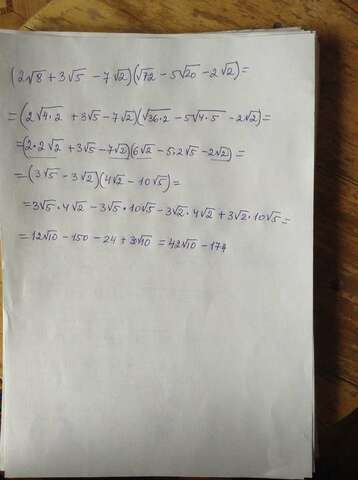 (2√8 + 3√5 - 7√2)(√72 - 5√20 - 2√2) =
= (2√4·2 + 3√5 - 7√2)(√36·2 - 5√4·5 - 2√2) =
= (2·2√2 + 3√5 - 7√2)(6√2 - 5·2√5 - 2√2) =
= (3√5 - 3√2)(4√2 - 10√5) =
= 3√5·4√2 - 3√5·10√5 - 3√2·4√2 + 3√2·10√5 =
= 12√10 - 150 - 24 + 30√10 = 42√10 - 174